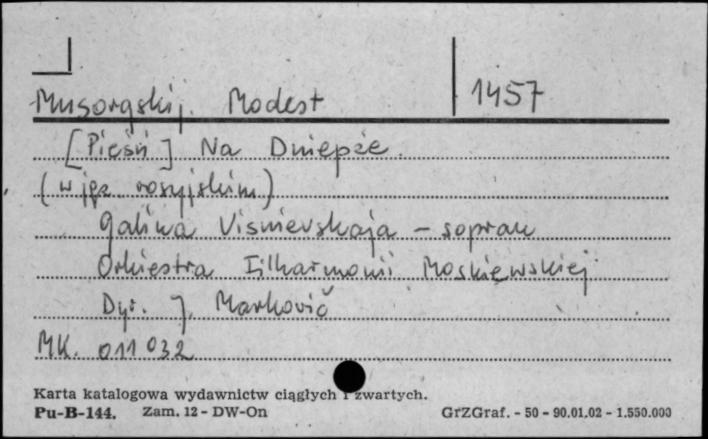 Musorgskij. Modest 1457
[Pieśń] Na Dniepże.
(w jęz. rosyjskim)
Galina Visnievskaja – sopran
Orkiestra Filharmonii Moskiewskiej
Dyr. J. Markovič
MK. 011032
Karta katalogowa wydawnictw ciągłych i zwartych.
Pu-B-144. Zam. 12 - DW-On GrZGraf. - 50 - 90.01.02 - 1.550.000